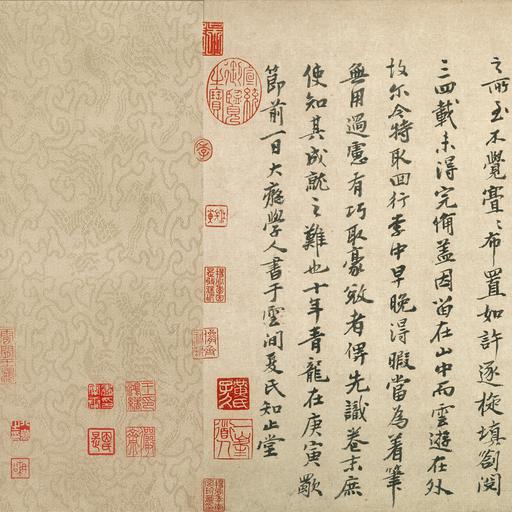 之所至不覺亹〻布置如許逐旋填劄閱
三四載未得完備盖因畱在山中而雲遊在外
故尔今特取回行李中早晚得暇當為着筆
無用過慮有巧取豪敓者俾先識卷末庶
使知其成就之難也十年青龍在庚寅歜
節前一日大癡學人書于雲間夏氏知止堂
宣統御覽之寶
黃氏子久
一峯道人